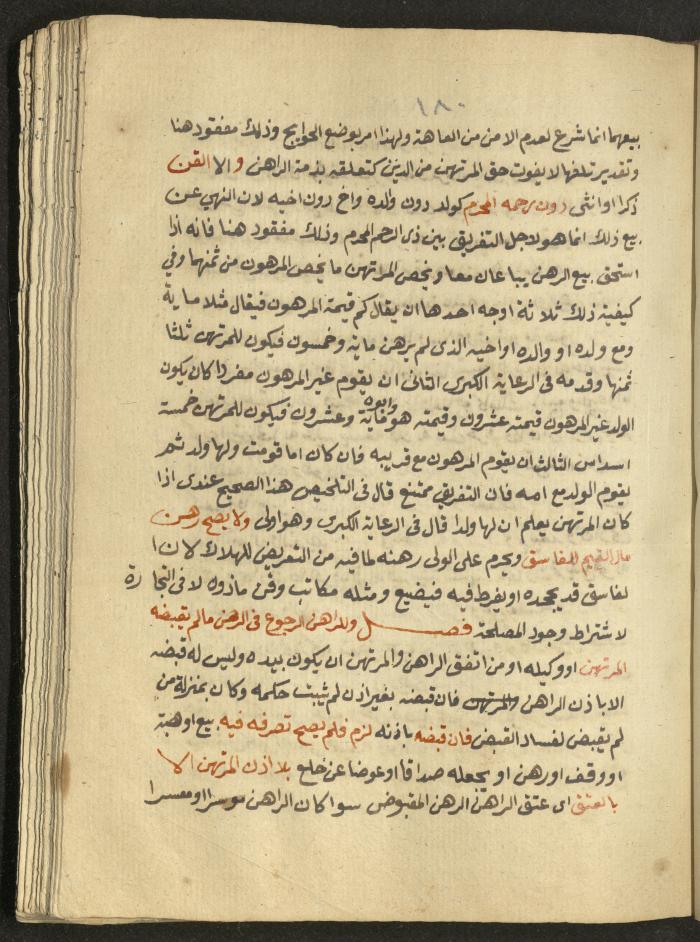 ١٨٠
بيعهما انما شرع لعدم الامن من العاهة ولهذا امر بوضع الجوايح وذلك مفقود هنا
وتقدير تلفها لا يفوت حق المرتهن من الدين كتعلقه بذمة الراهن والا القن
ذكرا او انثى دون رحمه المحرم كولد دون والده واخ دون اخيه لان النهي عن
بيع ذلك انما هو لاجل التفريق بين ذى الرحم المحرم وذلك مفقود هنا فانه اذا
استحق بيع الرهن يباعان معا ويخص المرتهن ما يخص المرهون من ثمنهما وفي
كيفية ذلك ثلاثة اوجه احدها ان يقال كم قيمة المرهون فيقال مثلا ماية
ومع ولده او والده او اخيه الذى لم يرهن ماية وخمسون فيكون للمرتهن ثلثا
ثمنها وقدمه فى الرعاية الكبرى الثانى ان يقوم غير المرهون مفردا كان يكون
الولد غير المرهون قيمته عشرون وقيمته هو وابوه ماية وعشرون فيكون للمرتهن خمسة
اسداس الثالث ان يقوم المرهون مع قريبه فان كان اما قومت ولها ولد ثم
يقوم الولد مع امه فان التفريق ممتنع قال فى التلخيص هذا الصحيح عندى اذا
كان المرتهن يعلم ان لها ولدا قال فى الرعاية الكبرى وهو اولى ولا يصح رهن
مال اليتيم للفاسق ويحرم على الولى رهنه لما فيه من التعريض للهلاك لان ا
لفاسق قد يجحده او يفرط فيه فيضيع ومثله مكاتب وقن ماذون لا فى التجا رة
لاشتراط وجود المصلحة فصل وللراهن الرجوع فى الرهن مالم يقبضه
المرتهن او وكيله او من اتفق الراهن والمرتهن ان يكون بيده وليس له قبضه
الا باذن الراهن والمرتهن فان قبضه بغير اذن لم يثبت حكمه وكان بمنزلة من
لم يقبض لفساد القبض فان قبضه باذنه لزم فلم يصح تصرفه فيه ببيع او هبة
او وقف او رهن او بجعله صداقا او عوضا عن خلع بلا اذن المرتهن الا
بالعتق اى عتق الراهن الرهن المقبوض سوا كان الراهن موسرا او معسرا